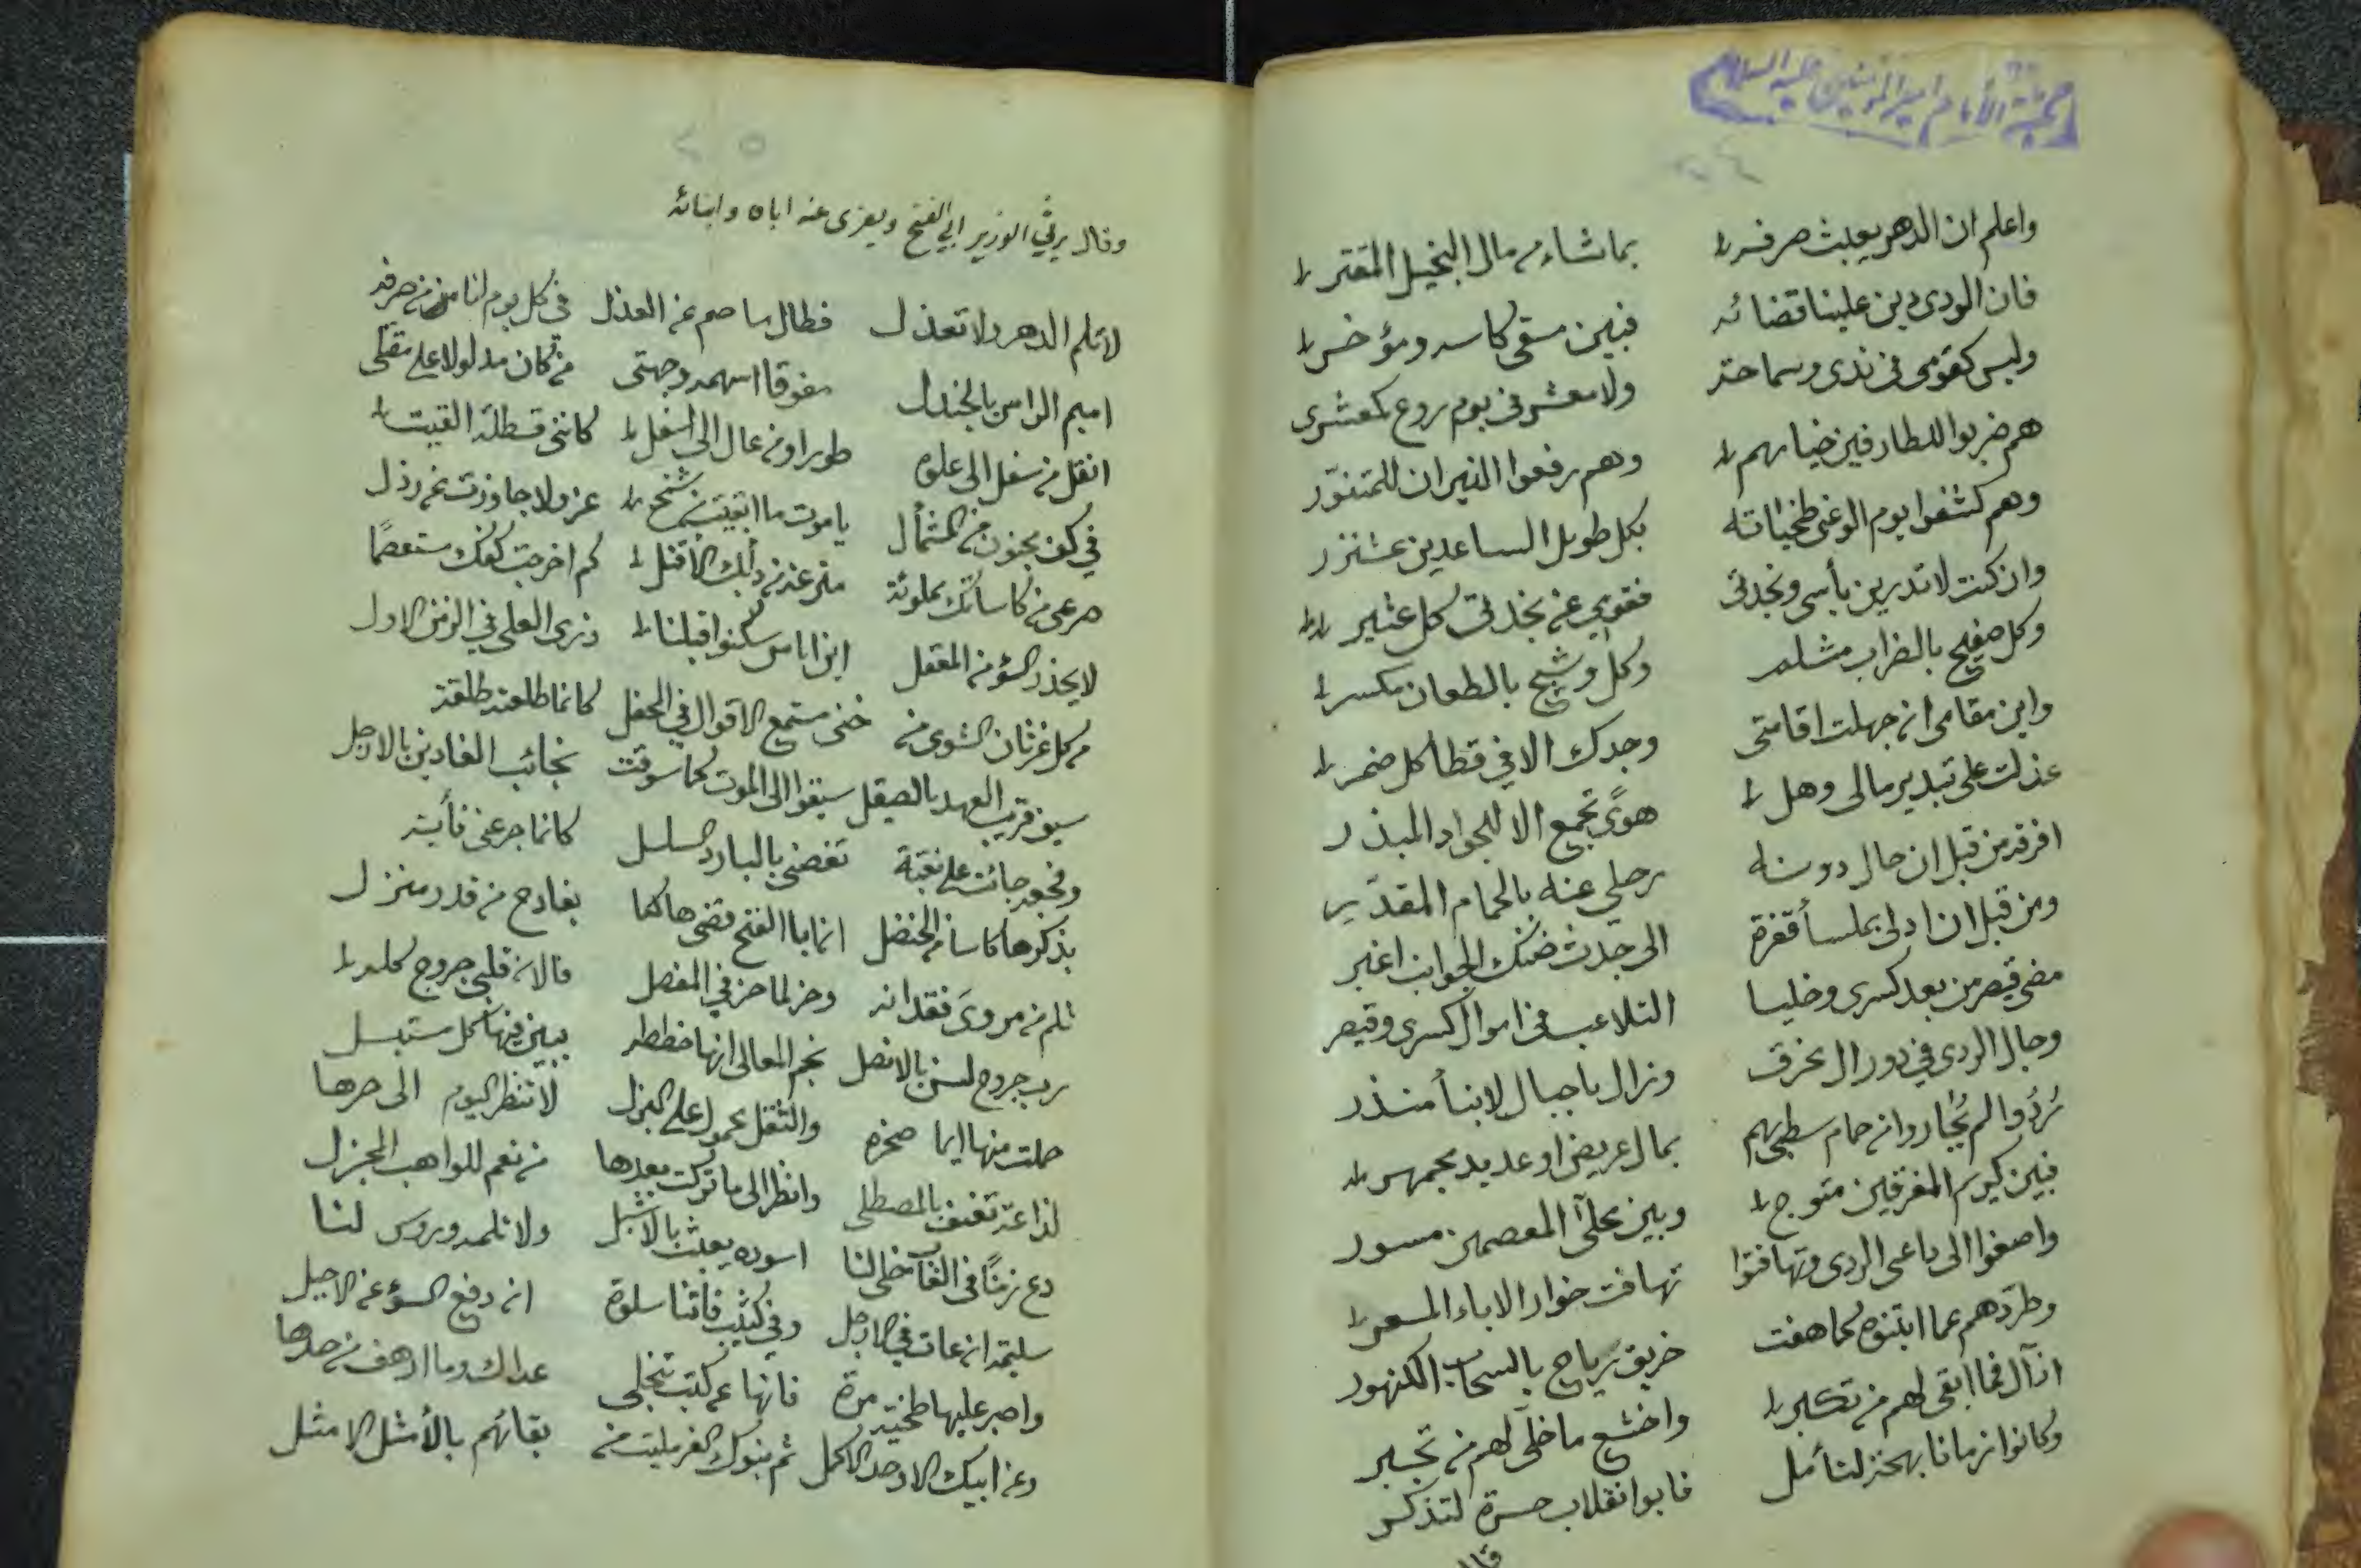 مكتبة الإمام امير المؤمنين عليه السلام
٢٤
واعلم ان الدهر يعبث صرفه بما شاء من مال البخيل المقتر
فان الردى دين علينا قضائه فبين مسقى كاسه ومؤخر
وليس كقومى فى ندى وسماحة ولا معشر فى يوم روع كمعشرى
هم ضربوا للطارقين خيامهم وهم رفعوا النيران للمتنور
وهم كشفوا يوم الوغى طخياته بكل طويل الساعدين عشنزر
وان كنت لا تدرين بأسى ونجدتى فقومي عن نجدتى كل عثير
وكل صفيح بالضراب مثلم وكل وشيج بالطعان مكسر
واين مقامى ان جهلت اقامتى وجدك الا في قطا كل ضمر
عذلت على تبذير مالى وهل هوىً تجمع الا للجواد المبذر
افرقه من قبل ان حال دونه رحلي عنه بالحمام المقدر
ومن قبل ان ادلى بملسأ قفرة الى جدث ضنك الجوانب اغبر
مضى قيصر من بعد كسرى وخليا التلاعب فى اموال كسرى وقيصر
وجال الردى في دور ال محرق ونزال باجبال لابنأ منذر
ثردوا لم يُجاروا من حمام سطى بهم بمال عريض او عديد مجمهر
فبين كريم المفرقين متوج وبين محلّى المعصمين مسور
واصغوا الى داعى الردى وتهافتوا تهافت خوار الاباء المسعر
وطردهم عما ابتنوه كما هفت خريق رياح بالسحاب الكنهور
ازال فما ابقى لهم من تكبر واخشع ما خلى لهم من تجبر
وكانوا زمانا بهجة لتأمل فابوا انقلاب حسرة لتذكر
٢٥
وقال يرثي الوزير ابي الفتح ويعزى عنه اباه وابنائه
لا تلم الدهر ولا تعذل فطال ما صم عن العذل في كل يوم انا من صرفه
اميم الراس بالجندل مفوقا اسهمه وجهتى من كان مدلولا على مقتلى
انقل من سفل الى علوه طورا ومن عال الى اسفل كاننى قسطلة القيت
في كف مجنون من الشمأل يا موت ما ابقيت من شخ عز ولا جاوزت عن رذل
صرعى من كاساتك مملوئة منزعنه ذلك الاقتل كم اخرجت كفك مستعصمًا
لا يحذر السؤ من المعقل اين اناس سكنوا قبلنا ذرى العلى في الزمن الاول
من كل غرثان الشوى من خنى مستمع الاقوال في المحفل كانما طلعته طلقة
سيف قريب العهد بالصيقل سيقوا الى الموت كما سوقت نجائب الغادين بالارحل
وفجعة جائت على بغتة تغصنى بالبارد السلسل كانما جرعنى نابه
بذكرها كاسا من الحنضل ان ابا الفتح قضى هالكا بفادح من قدر منزل
ثلم من مروى فقدانه وحز لما حز في المفصل فالان قلبى جروح كله
رب جروح لسن بالانصل نجم المعالى انها خطط يبين فيها كل مستبسل
حملت منها ايما صخره والثقل محمول على البزل لا تنظر اليوم الى حرها
لذاعة تعنف بالمصطلى وانظر الى ما تركت بعدها من نعم للواهب المجزل
دع زمنًا فى الغاب خلى لنا اسوده يعبث بالاشبل ولا تلمه وروس لنا
سليمة ان عاث في الارجل وفى كثيب فاتنا سلوة ان دفع السؤ عن الاجبل
واصبر عليها طخية مرة فانها عن كثب تنجلى عداك وما ارهف من حدها
وعن ابيك الاوحد الاكمل ثم بنوك الغر مليت من بقائهم بالأمثل الامثل